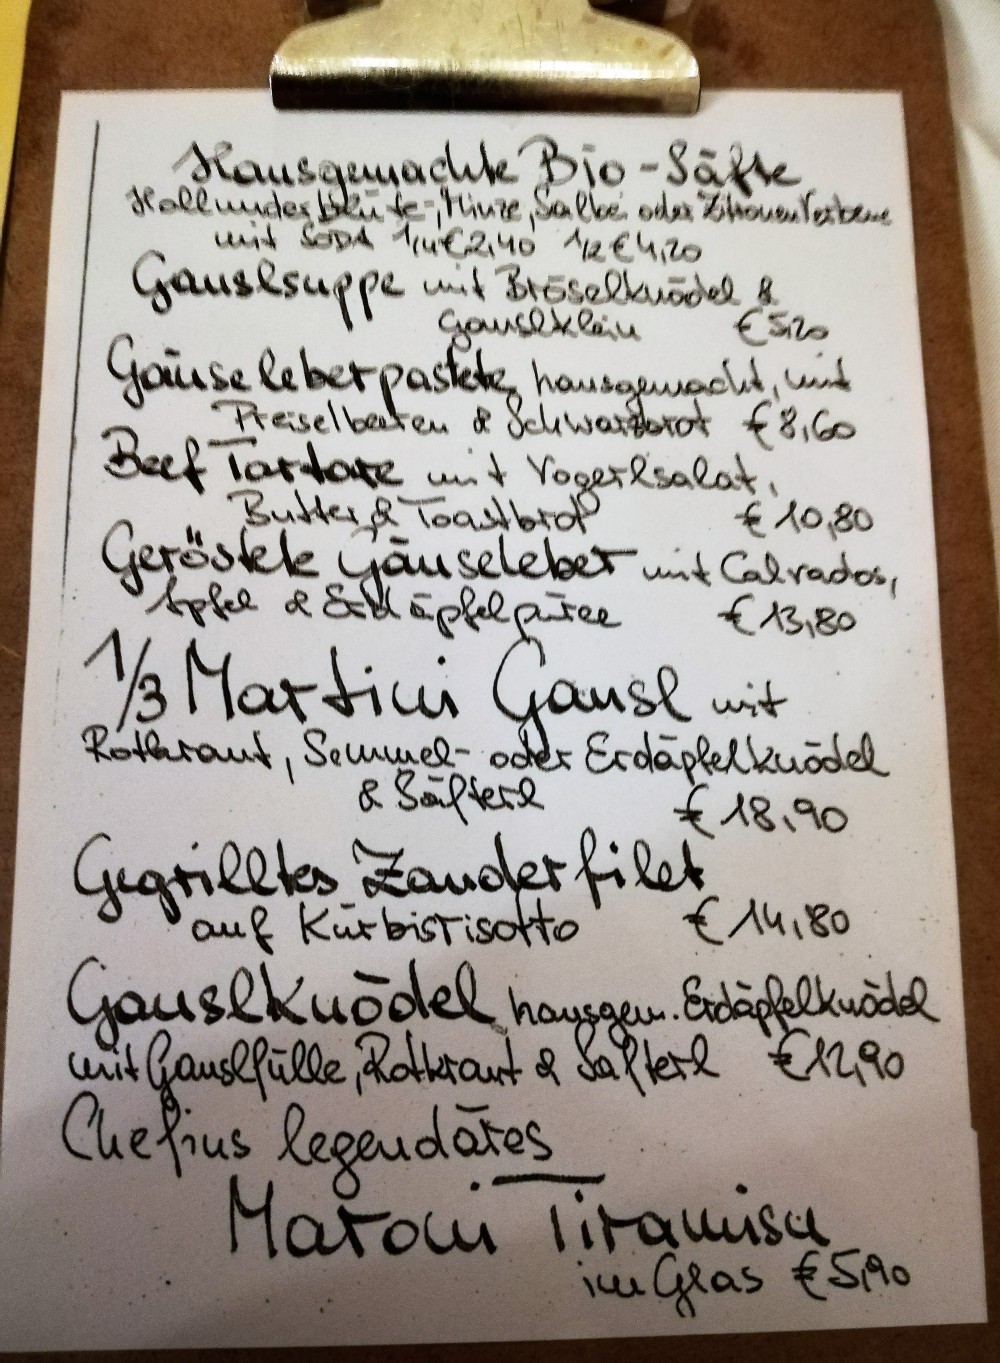 Hausgemachte Bio-Säfte
Hollunderblüte-, Minze, Salbei oder Zitronenverbene
mit SODA 1/4 € 2,40 1/2 € 4,20
Ganslsuppe mit Bröselknödel &
Ganslklein € 5,20
Gänseleberpastete, hausgemacht, mit
Preiselbeeren & Schwarzbrot € 8,60
Beef Tartare mit Vogerlsalat,
Butter & Toastbrot € 10,80
Geröstete Gänseleber mit Calvados,
Apfel & Erdäpfelpüree € 13,80
1/3 Martini Gansl mit
Rotkraut, Semmel- oder Erdäpfelknödel
& Säfterl € 18,90
Gegrilltes Zanderfilet
auf Kürbisrisotto € 14,80
Ganslknödel hausgem. Erdäpfelknödel
mit Ganslfülle, Rotkraut & Safterl € 12,90
Chefins legendäres
Maroni Tiramisu
im Glas € 5,90